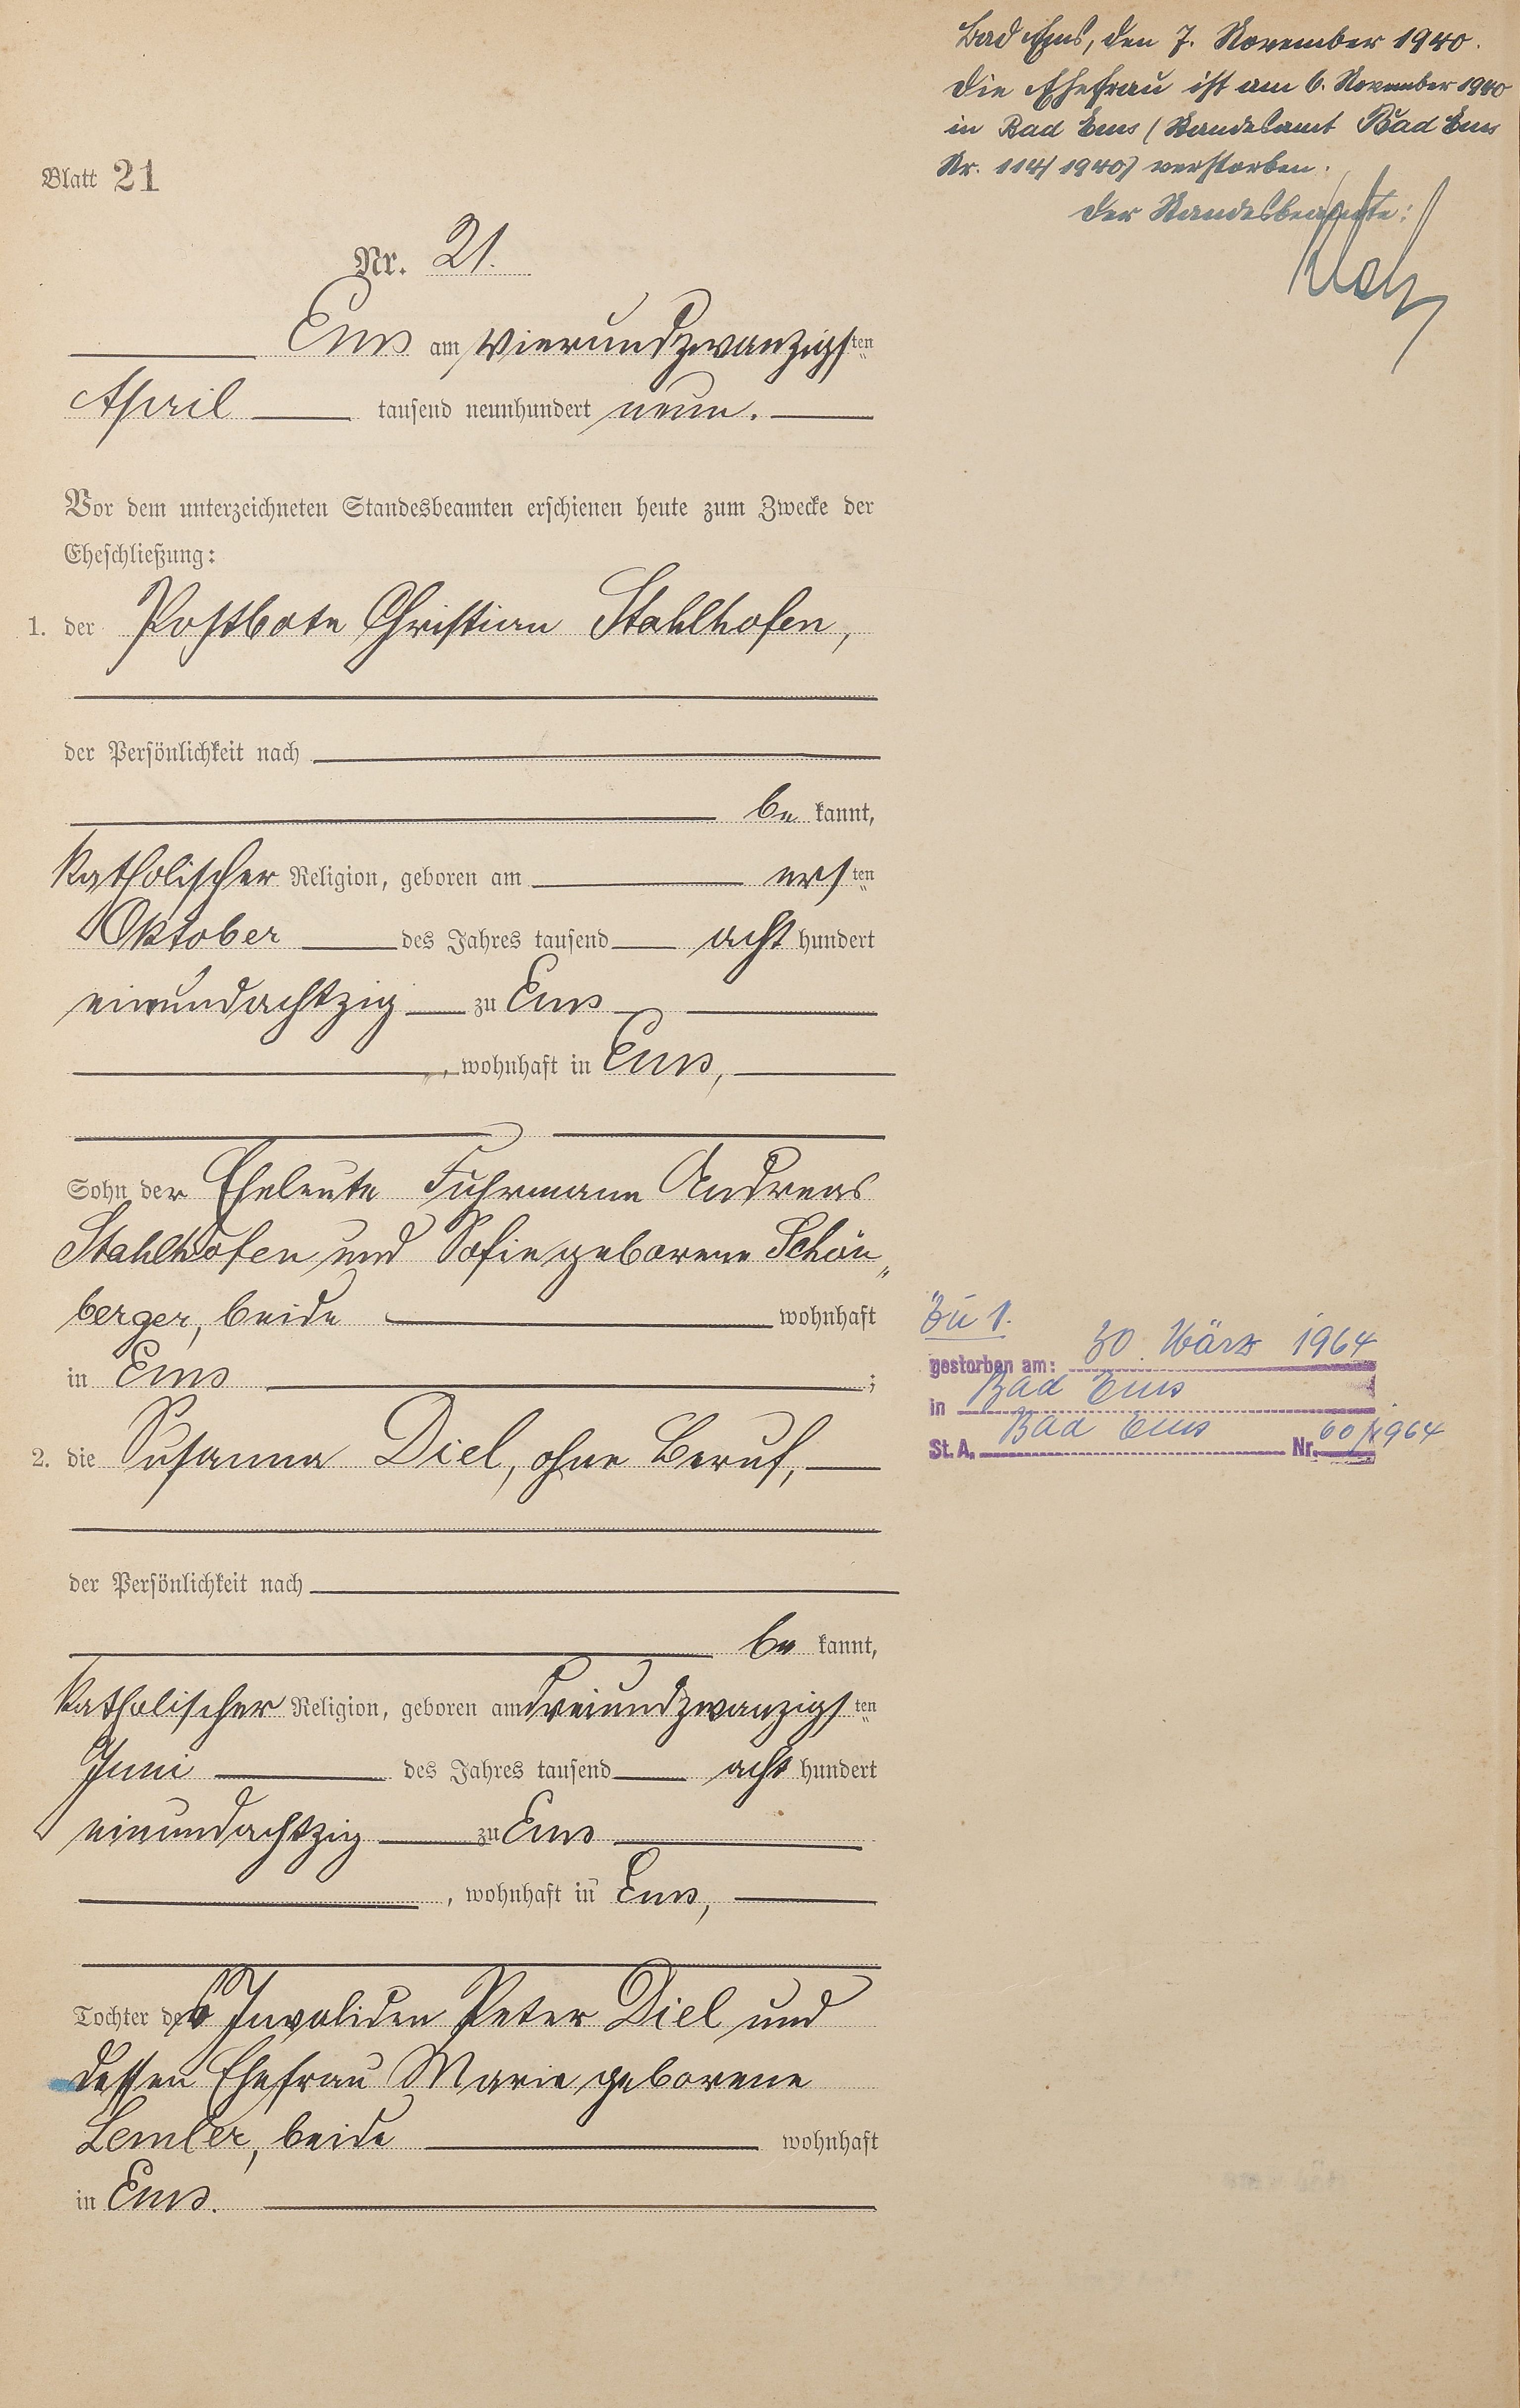 Bad Ems, den 7. November 1940.
Die Ehefrau ist am 6. November 1940
in Bad Ems (Standesamt Bad Ems
Nr. 114/1940) verstorben.
Der Standesbeamte:
Blatt 21
Nr. 21.
Ems am vierundzwanzigsten
April tausend neunhundert neun.
Vor dem unterzeichneten Standesbeamten erschienen heute zum Zwecke der
Eheschließung:
1. der Postbote Christian Stahlhofen,
der Persönlichkeit nach
be kannt,
katholischer Religion, geboren am ersten
Oktober des Jahres tausend acht hundert
einundachtzig zu Ems
, wohnhaft in Ems,
Sohn der Eheleute Fuhrmann Andreas
Stahlhofen und Sofie geborene Schön„
berger, beide wohnhaft
in Ems ;
2. die Susanna Diel, ohne Beruf,
der Persönlichkeit nach
be kannt,
katholischer Religion, geboren am dreiundzwanzigsten
Juni des Jahres tausend acht hundert
einundachtzig zu Ems
, wohnhaft in Ems,
Tochter des Invaliden Peter Diel und
dessen Ehefrau Marie geborene
Lemler, beide wohnhaft
in Ems.
Zu 1.
gestorben am: 30. März 1964
in Bad Ems
St.A. Bad Ems Nr. 60/1964